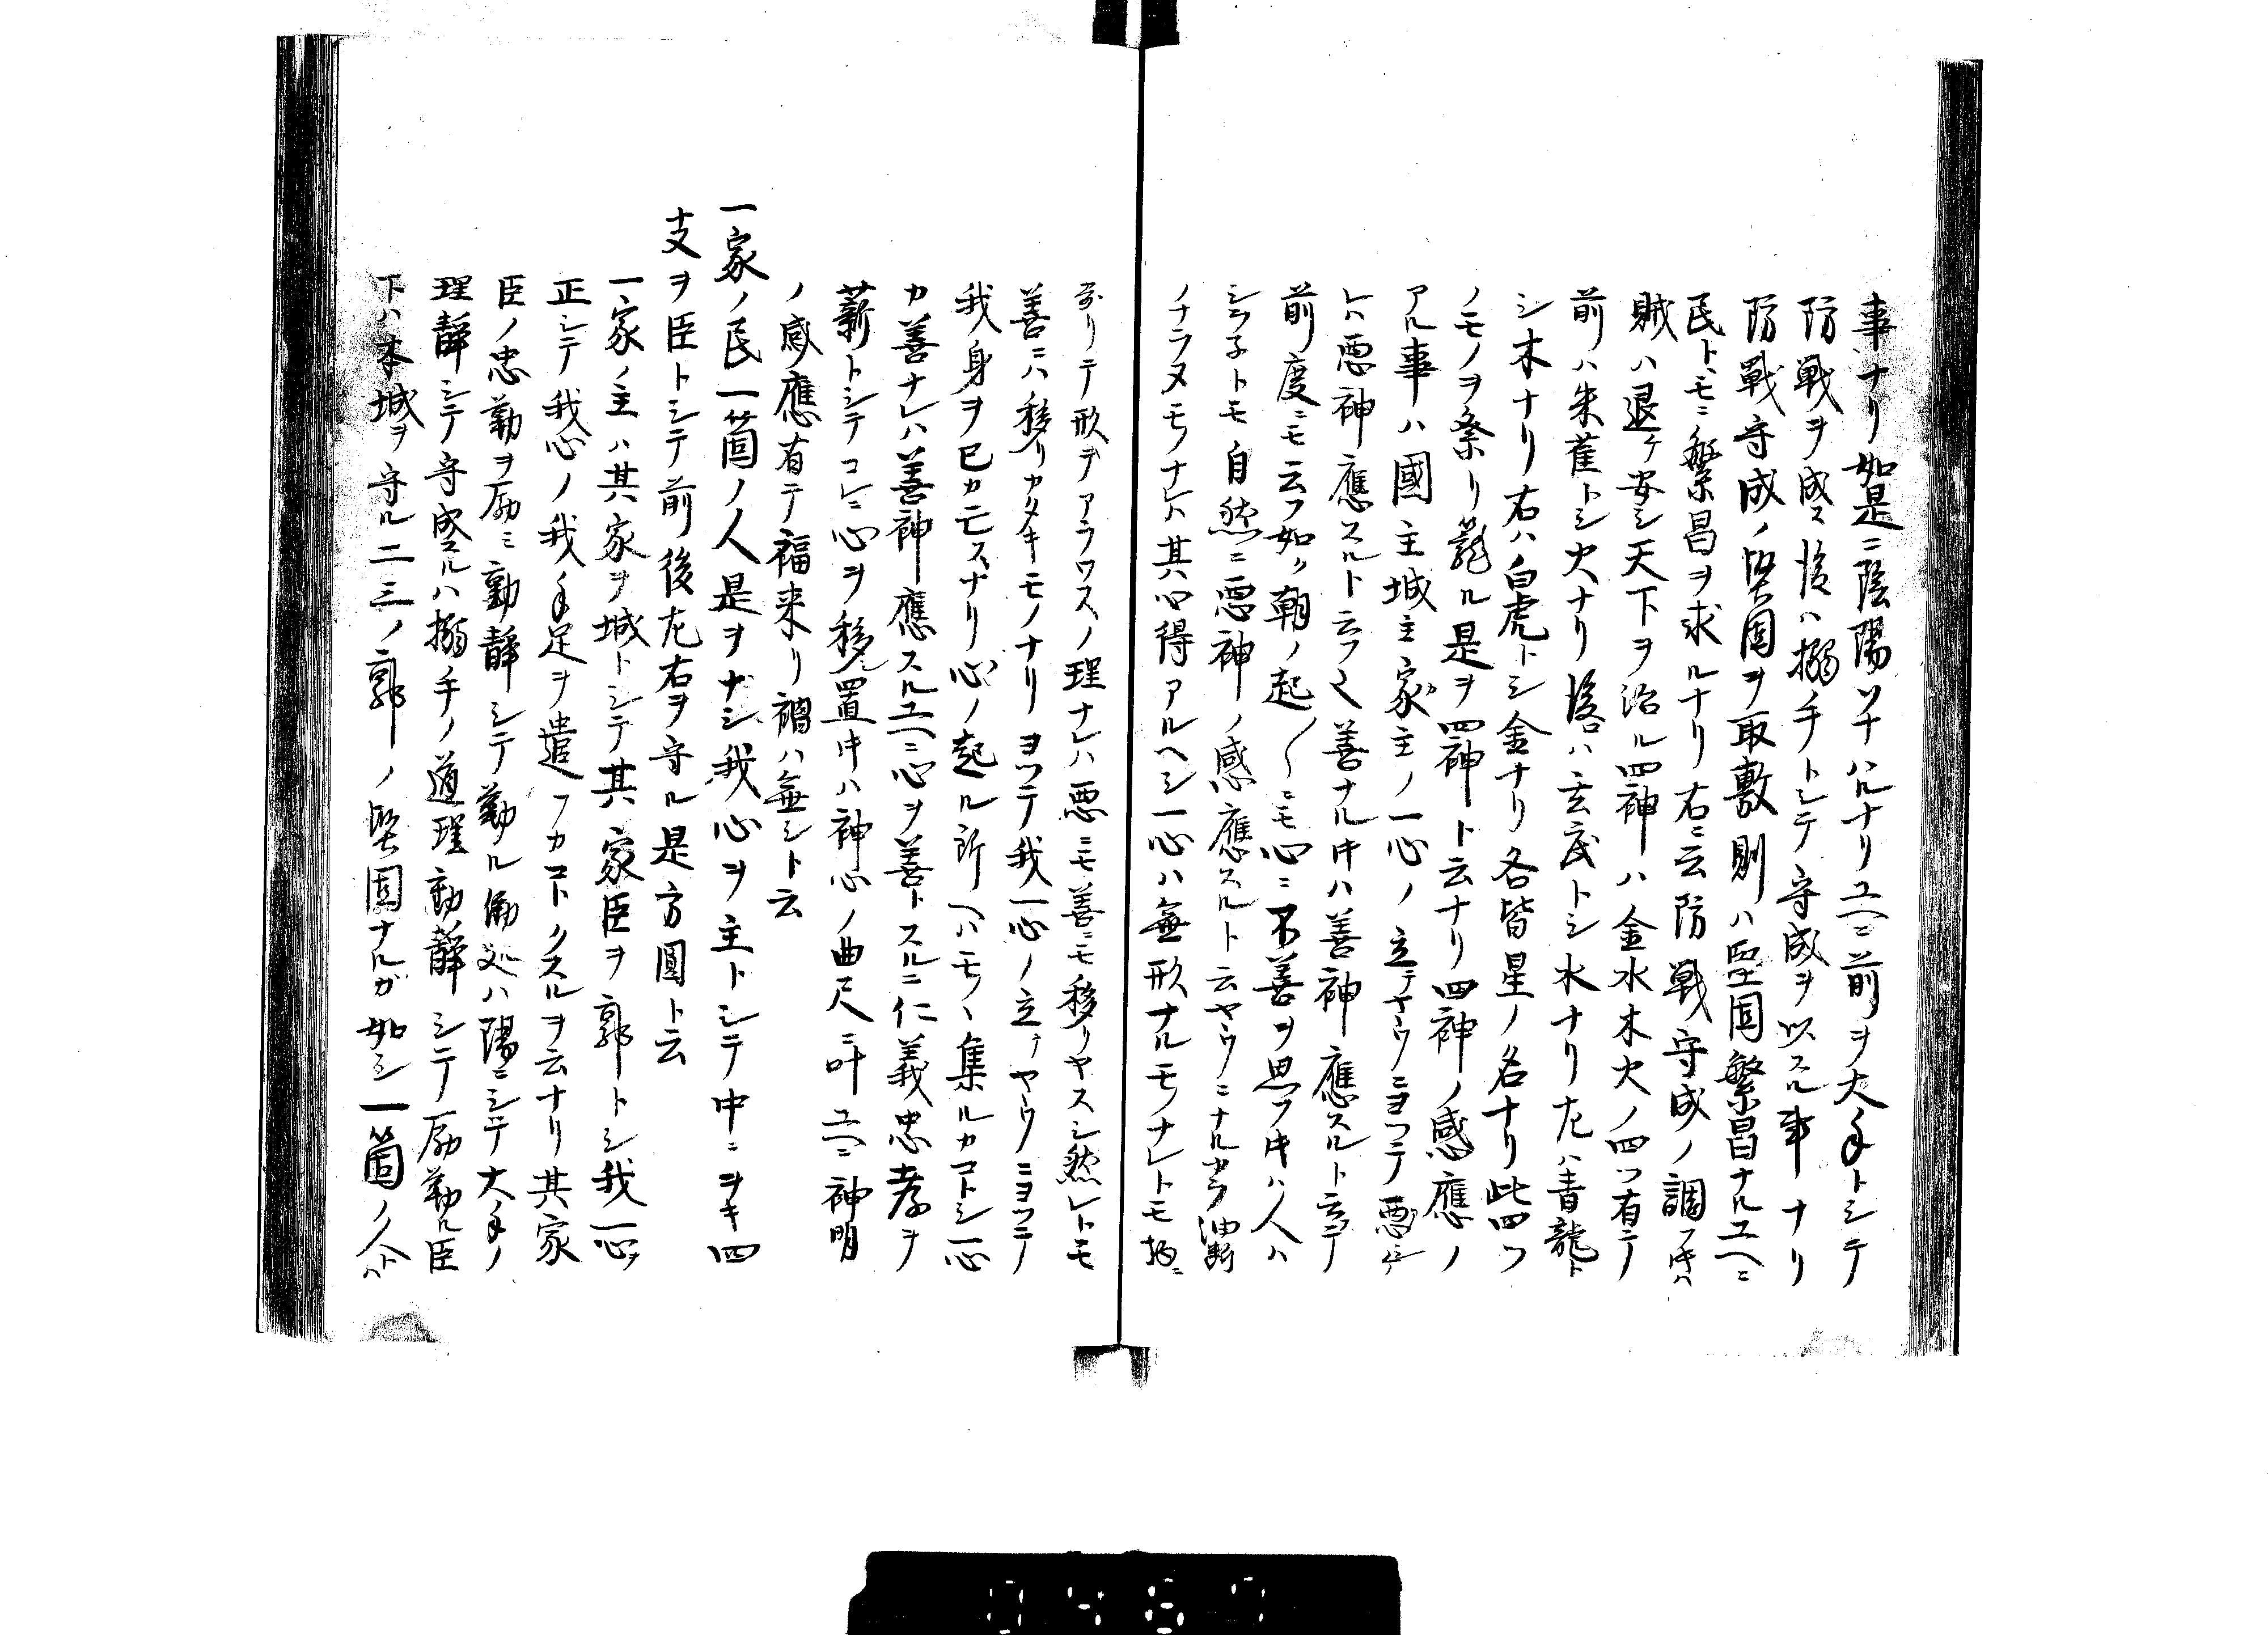 事ナリ如是ニ陰陽ソナハルナリユヘニ前ヲ大手トシテ
防戦ヲ成ス後ハ搦手トシテ守成ヲ以スル事ナリ
防戦守成ノ堅固ヲ取敷則ハ堅固繁昌ナルユヘニ
民トモニ繁昌ヲ求ルナリ右ニ云防戦守成ノ調フ時ハ
賊ハ退ケ安シ天下ヲ治ル四神ハ金水木火ノ四ツ有テ
前ハ朱雀トシ火ナリ後ハ玄武トシ水ナリ左ハ青龍ト
シ木ナリ右ハ白虎トシ金ナリ各皆星ノ名ナリ此四ツ
ノモノヲ祭リ籠ル是ヲ四神ト云ナリ四神ノ感應ノ
アル事ハ國主城主家主ノ一心ノ立テヤウニヨツテ悪シケ
レハ悪神應スルト云フ又善ナル時ハ善神應スルト云テ
前度ニモ云フ如ク朝ノ起〳〵ニモ心ニ不善ヲ思フ時ハ人ハ
シラ子トモ自然ニ悪神ノ感應スルト云ヤウニナルカラ油断
ノナラヌモノナレハ其心得アルヘシ一心ハ無形ナルモノナレトモ物ニ
寄リテ形ヲアラワスノ理ナレハ悪ニモ善ニモ移リヤスシ然レトモ
善ニハ移リカタキモノナリヨツテ我一心ノ立テヤウニヨツテ
我身ヲ己カ亡スナリ心ノ起ル所ヘハモノヽ集ルカコトシ一心
カ善ナレハ善神應スルユヘニ心ヲ善トスルニ仁義忠孝ヲ
薪トシテコレニ心ヲ移シ置時ハ神心ノ曲尺ニ叶ユヘニ神明
ノ感應有テ福来リ禍ハ無シト云
一家ノ民一箇ノ人是ヲナシ我心ヲ主トシテ中ニヲキ四
支ヲ臣トシテ前後左右ヲ守ル是方圓ト云
一家ノ主ハ其家ヲ城トシテ其家臣ヲ郭トシ我一心ヲ
正シテ我心ノ我手足ヲ遣フカコトクスルヲ云ナリ其家
臣ノ忠勤ヲ励ミ動静シテ勤ル働処ハ陽ニシテ大手ノ
理静シテ守成スルハ搦手ノ道理動静シテ励勤ル臣
下ハ本城ヲ守ル二三ノ郭ノ堅固ナルガ如シ一箇ノ人ハ